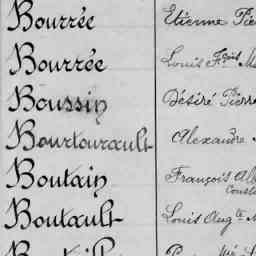 Bourrée Etienne Pie
Bourrée Louis Fçois M
Boussin Désiré Pierre
Bourtourault Alexandre
Boutain François Al
Const
Boutault Louis Augte M